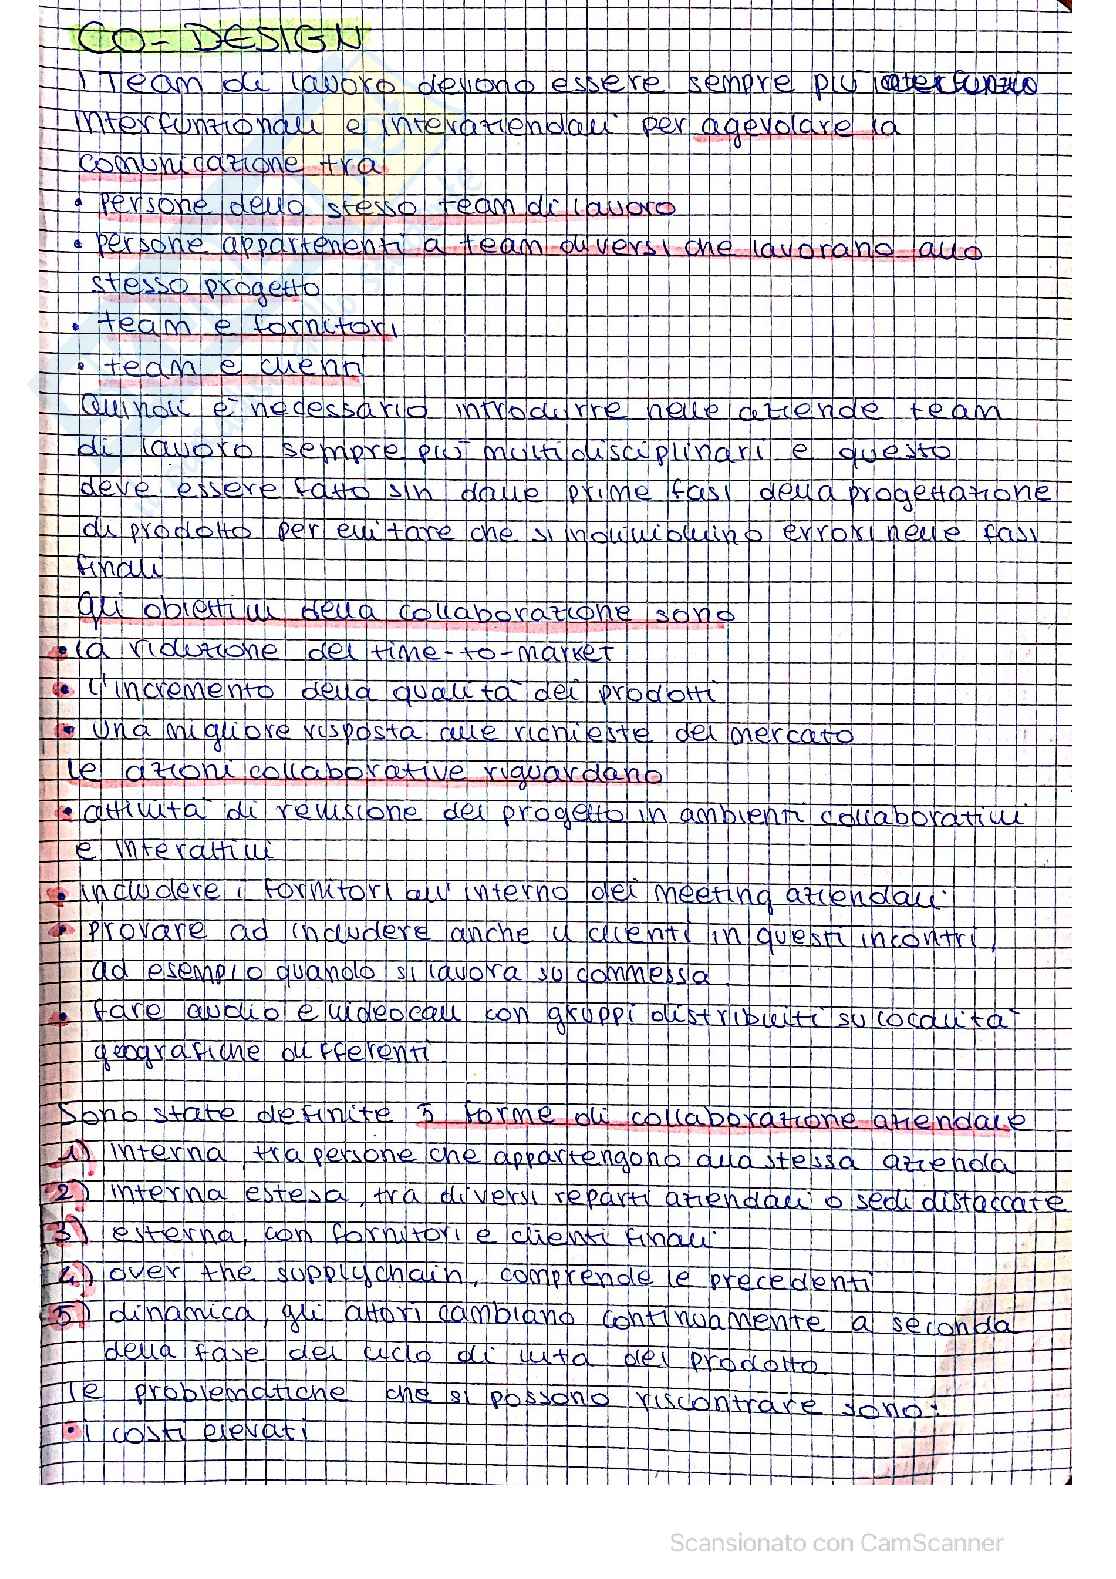 CO-DESIGN
I Team di lavoro devono essere sempre più
interfunzionali e interaziendali per agevolare la
comunicazione tra
• persone dello stesso team di lavoro
• persone appartenenti a team diversi che lavorano allo
stesso progetto
• team e fornitori
• team e clienti
Quindi è necessario introdurre nelle aziende team
di lavoro sempre più multidisciplinari e questo
deve essere fatto sin dalle prime fasi della progettazione
di prodotto per evitare che si individuino errori nelle fasi
finali
Gli obiettivi della collaborazione sono
• la riduzione del time-to-market
• l'incremento della qualità dei prodotti
• una migliore risposta alle richieste del mercato
le azioni collaborative riguardano
• attività di revisione del progetto in ambienti collaborativi
e interattivi
• includere i fornitori all'interno dei meeting aziendali
• provare ad includere anche i clienti in questi incontri,
ad esempio quando si lavora su commessa
• fare audio e videocall con gruppi distribuiti su località
geografiche differenti
Sono state definite 5 forme di collaborazione aziendale
1) interna, tra persone che appartengono alla stessa azienda
2) interna estesa, tra diversi reparti aziendali o sedi distaccate
3) esterna, con fornitori e clienti finali
4) over the supply chain, comprende le precedenti
5) dinamica, gli attori cambiano continuamente a seconda
della fase del ciclo di vita del prodotto
le problematiche che si possono riscontrare sono:
• i costi elevati
Scansionato con CamScanner